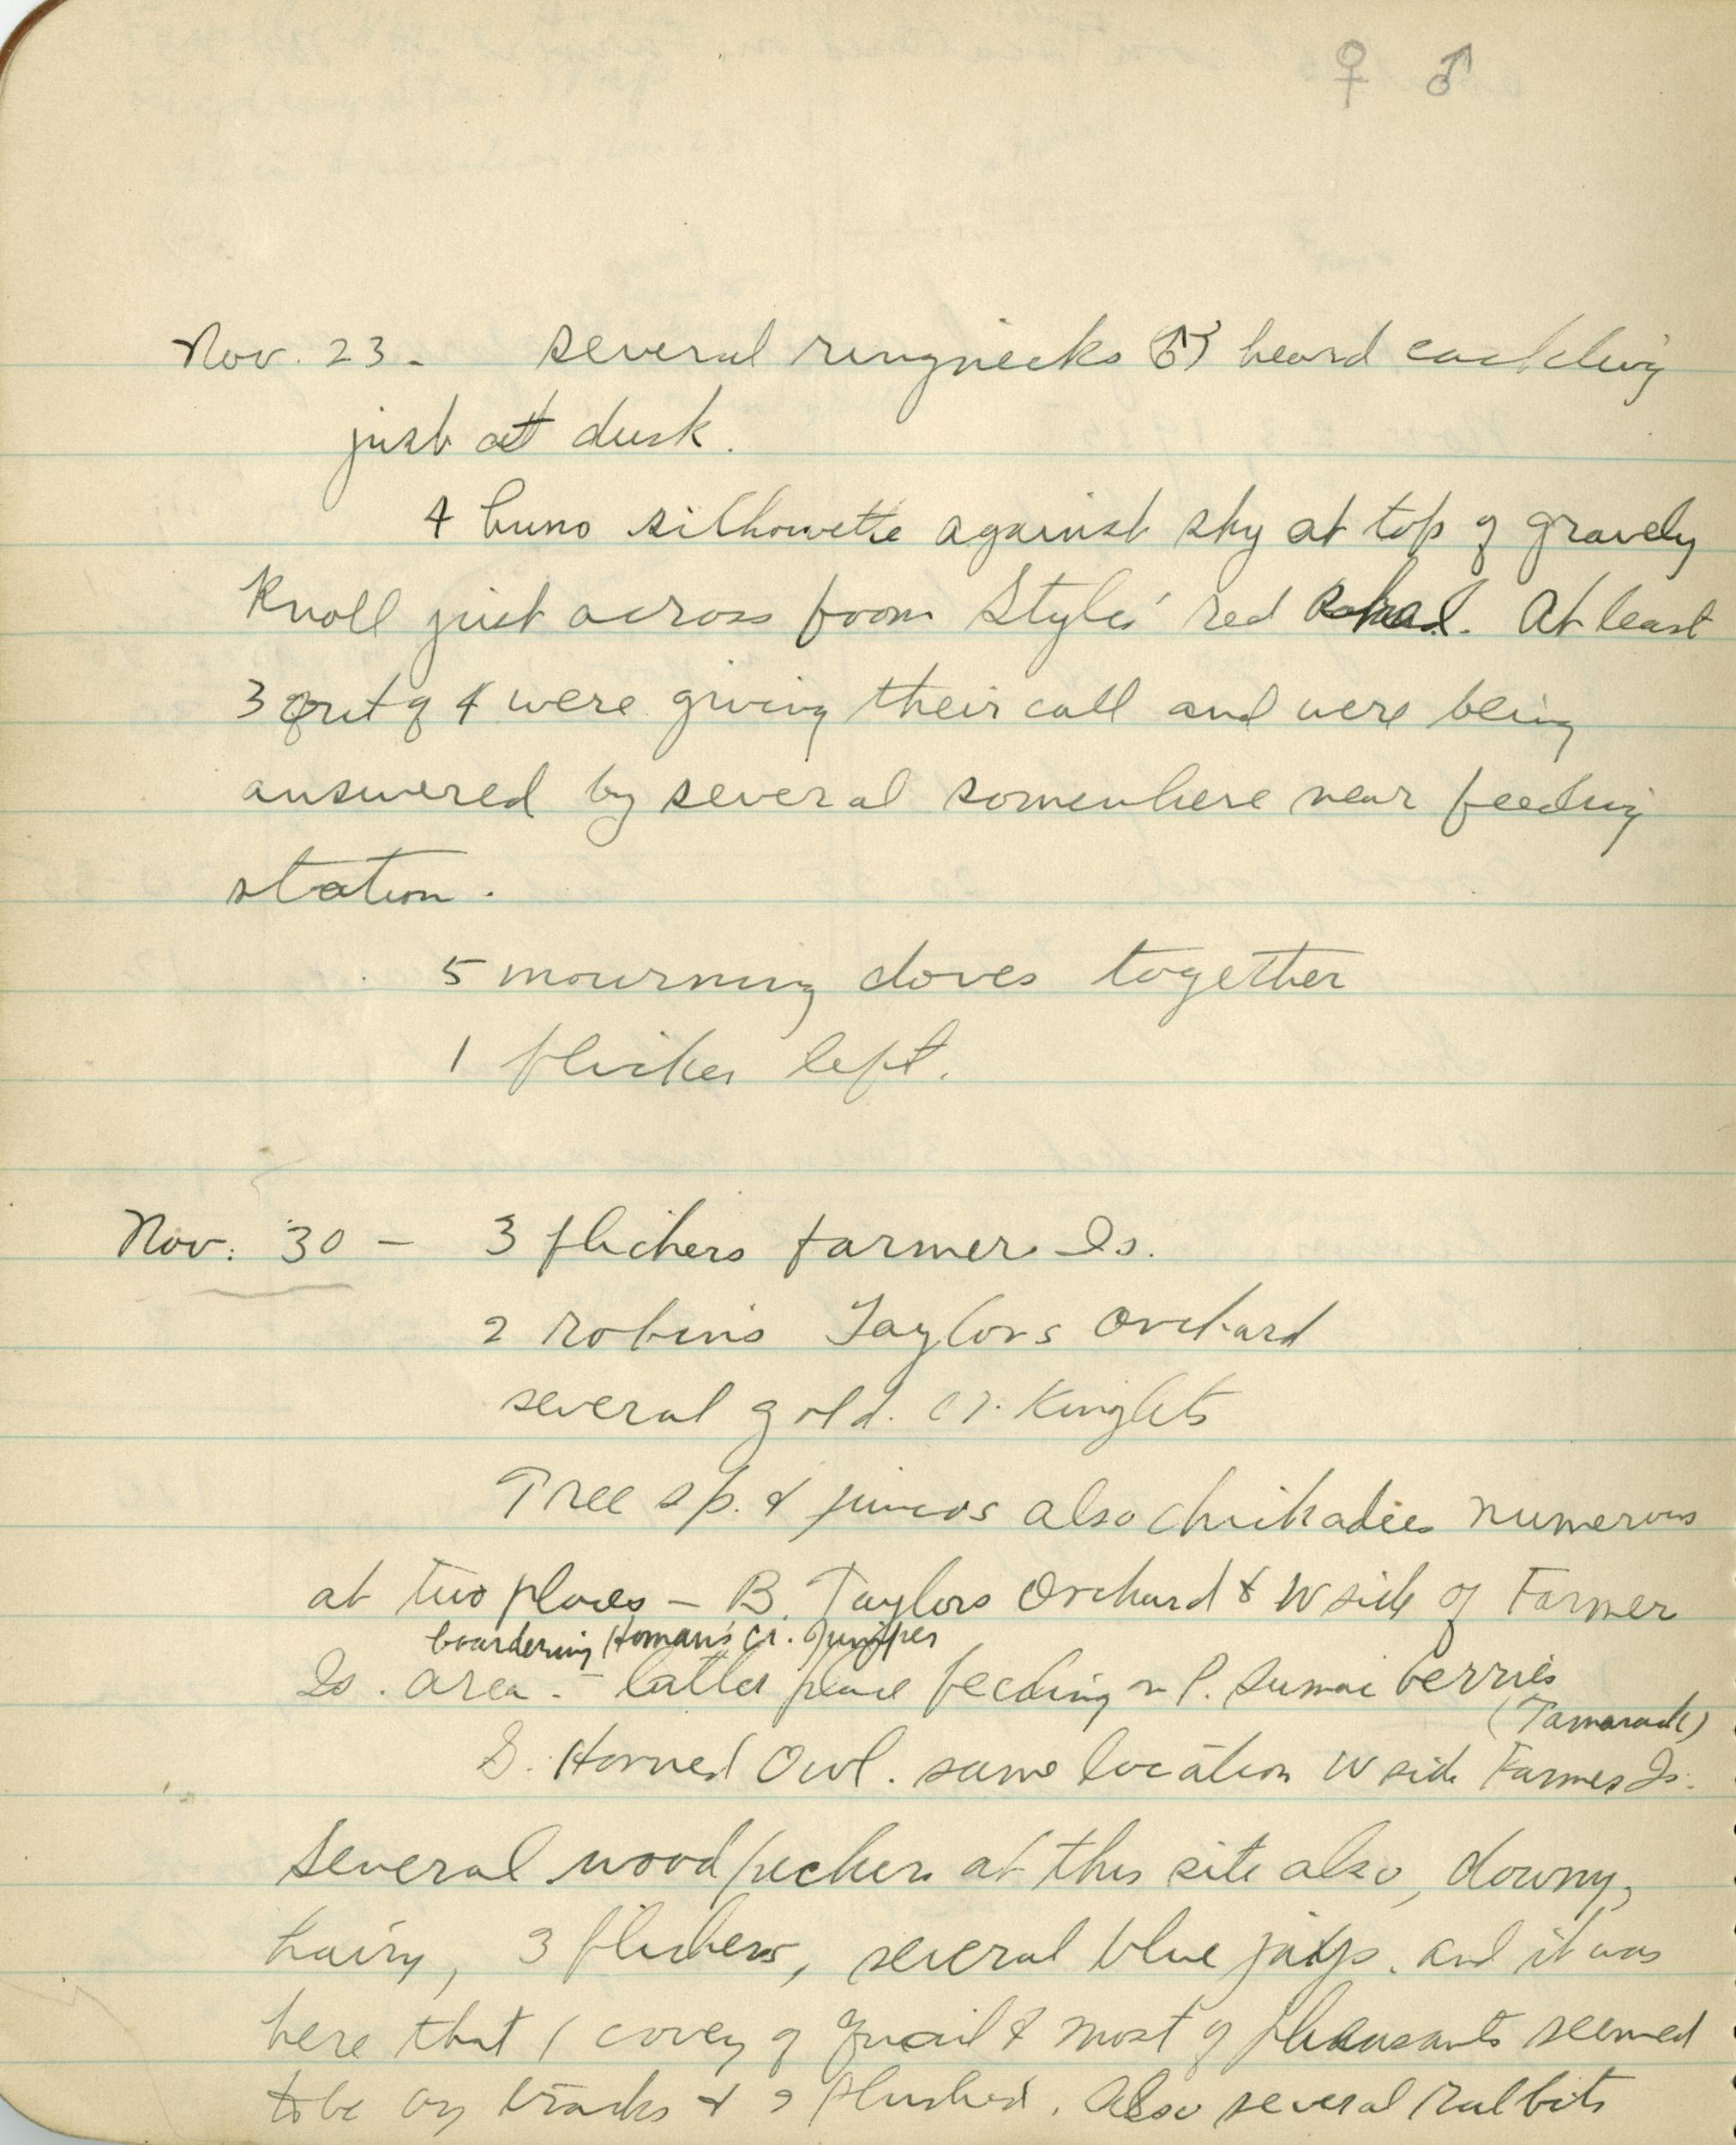 ♀ ♂
Nov. 23 - several ringnecks ♂ heard cackling
just at dusk.
4 huns silhouette against sky at top of gravely
Knoll just across from Style's red
At least
3 out of 4 were giving their call and were being
answered by several somewhere near feeding
station.
5 mourning doves together
1 flicker left.
Nov. 30 - 3 flickers Farmer Is.
2 robins Taylors Orchard
several gold. cr. Kinglets
Tree sp. & juncos also chickadees numerous
at two places - B. Taylors Orchard & W side of Farmer
boardering Homan's Cr. Juniper
Is. area. - latter place feeding on P. Sumac berries
(Tamarack)
G. Horned Owl. same location W side Farmer Is.
Several woodpeckers at this site also, downy,
hairy, 3 flickers, several blue jays. and it was
here that 1 covey of Quail & most of pheasants seemed
to be by tracks & 2 flushed. Also several rabbits